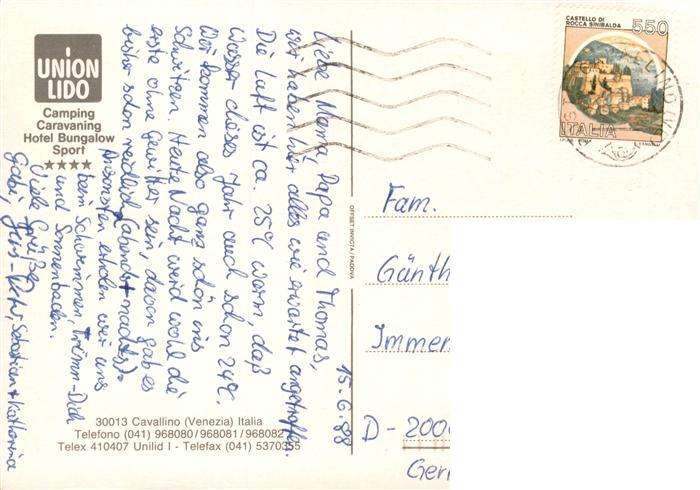 UNION
LIDO
Camping
Caravaning
Hotel Bungalow
Sport
★★★★
15.6.88
Liebe Mama, Papa und Thomas,
wir haben hier alles wie erwartet angetroffen.
Die Luft ist ca. 25°C warm, das
Wasser dieses Jahr auch schon 24°C.
Wir kommen also ganz schön ins
Schwitzen. Heute Nacht werd wohl die
erste ohne Gewitter sein, davon gab es
bisher schon reichlich (abends + nachts).
Ansonsten erholen wir uns
beim Schwimmen, Trimm-Dich
und Sonnenbaden.
Viele Grüße
Gabi, Sebastian + Katharina
30013 Cavallino (Venezia) Italia
Telefono (041) 968080/968081/968082
Telex 410407 Unilid I - Telefax (041) 5370355
OFFSET INVICTA / PADOVA
CASTELLO DI
ROCCA SINIBALDA
550
ITALIA
Fam.
Günth
Immen
D - 2000
Ger